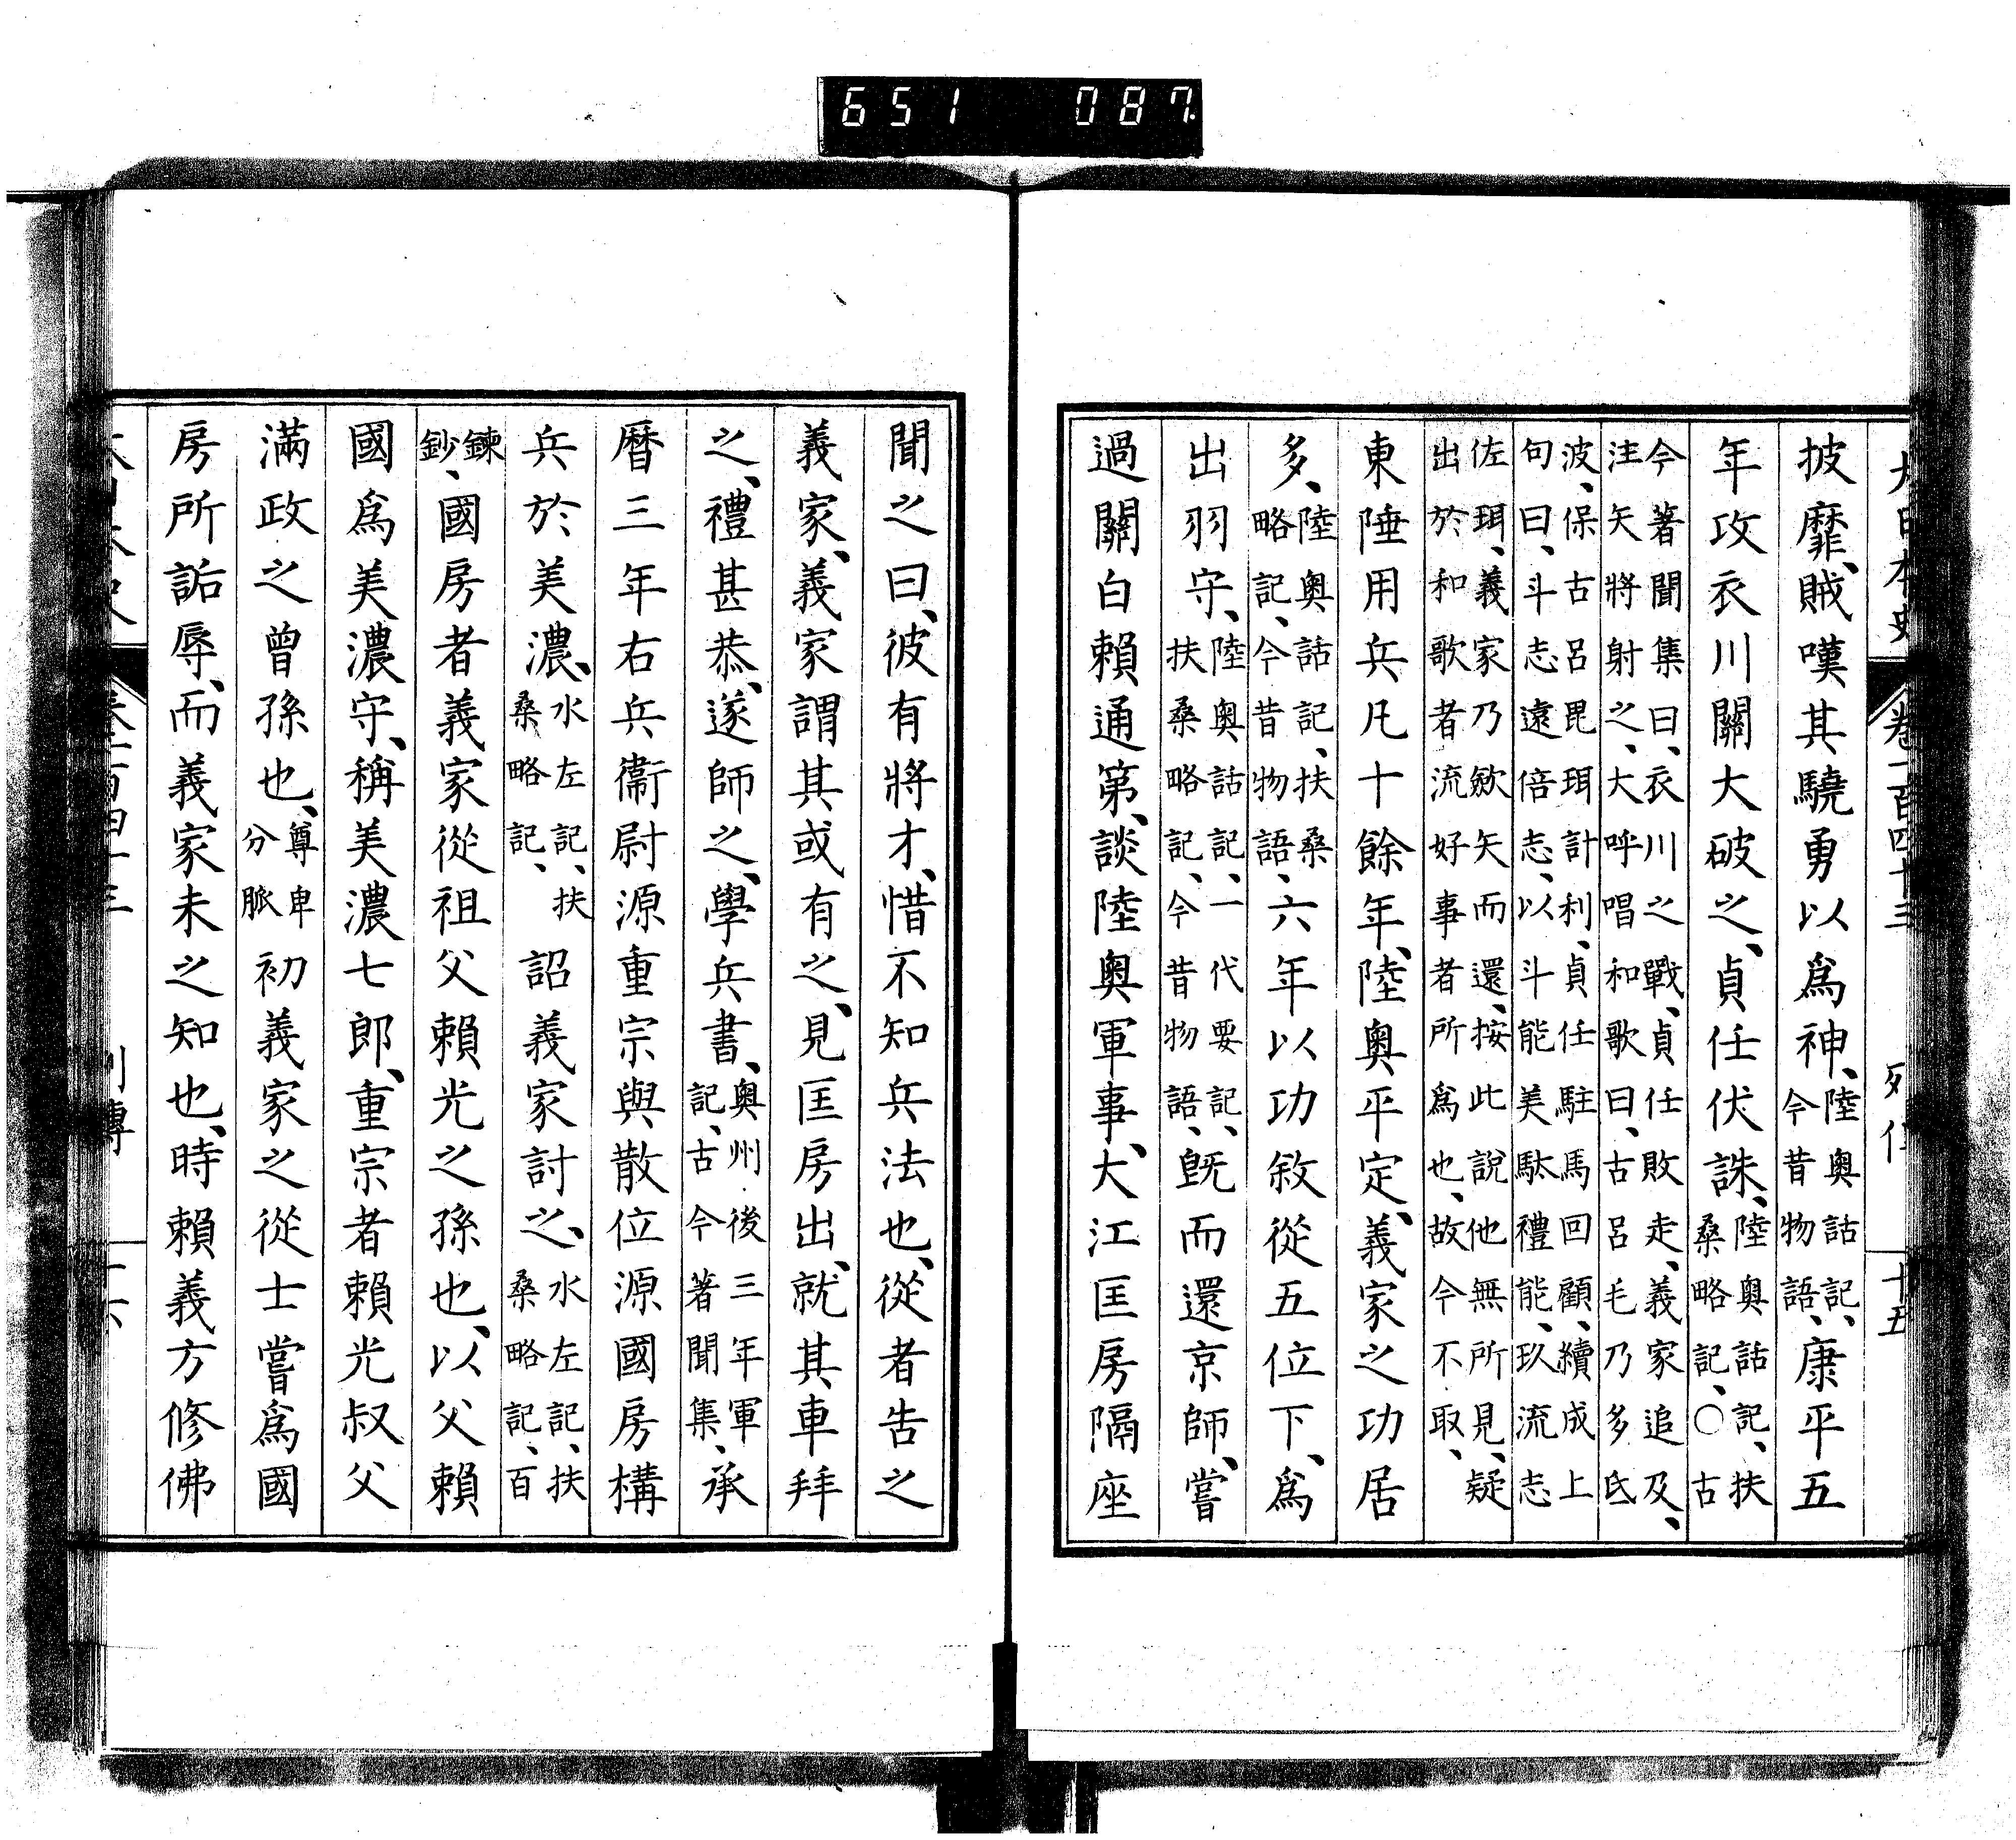 大日本史 卷一百四十三 列傳 十五
披靡、賊嘆其驍勇以爲神、陸奧話記、今昔物語、康平五
年攻衣川關大破之、貞任伏誅、陸奧話記、扶桑略記、○古
今著聞集曰、衣川之戰、貞任敗走、義家追及、
注矢將射之、大呼唱和歌曰、古呂毛乃多氐
波、保古呂毘珥計利、貞任駐馬回顧、續成上
句曰、斗志遠倍志、以斗能美駄禮能、玖流志
佐珥、義家乃歛矢而還、按此說他無所見、疑
出於和歌者流好事者所爲也、故今不取、
東陲用兵凡十餘年、陸奧平定、義家之功居
多、陸奧話記、扶桑略記、今昔物語、六年以功敘從五位下、爲
出羽守、陸奧話記、一代要記、扶桑略記、今昔物語、既而還京師、嘗
過關白賴通第、談陸奧軍事、大江匡房隔座
聞之曰、彼有將才、惜不知兵法也、從者告之
義家、義家謂其或有之、見匡房出、就其車拜
之、禮甚恭、遂師之、學兵書、奧州後三年軍記、古今著聞集、承
曆三年右兵衞尉源重宗與散位源國房構
兵於美濃、水左記、扶桑略記、詔義家討之、水左記、扶桑略記、百
鍊鈔、國房者義家從祖父賴光之孫也、以父賴
國爲美濃守、稱美濃七郎、重宗者賴光叔父
滿政之曾孫也、尊卑分脈初義家之從士嘗爲國
房所詬辱、而義家未之知也、時賴義方修佛
大日本史 卷一百四十三 列傳 十六
651 087